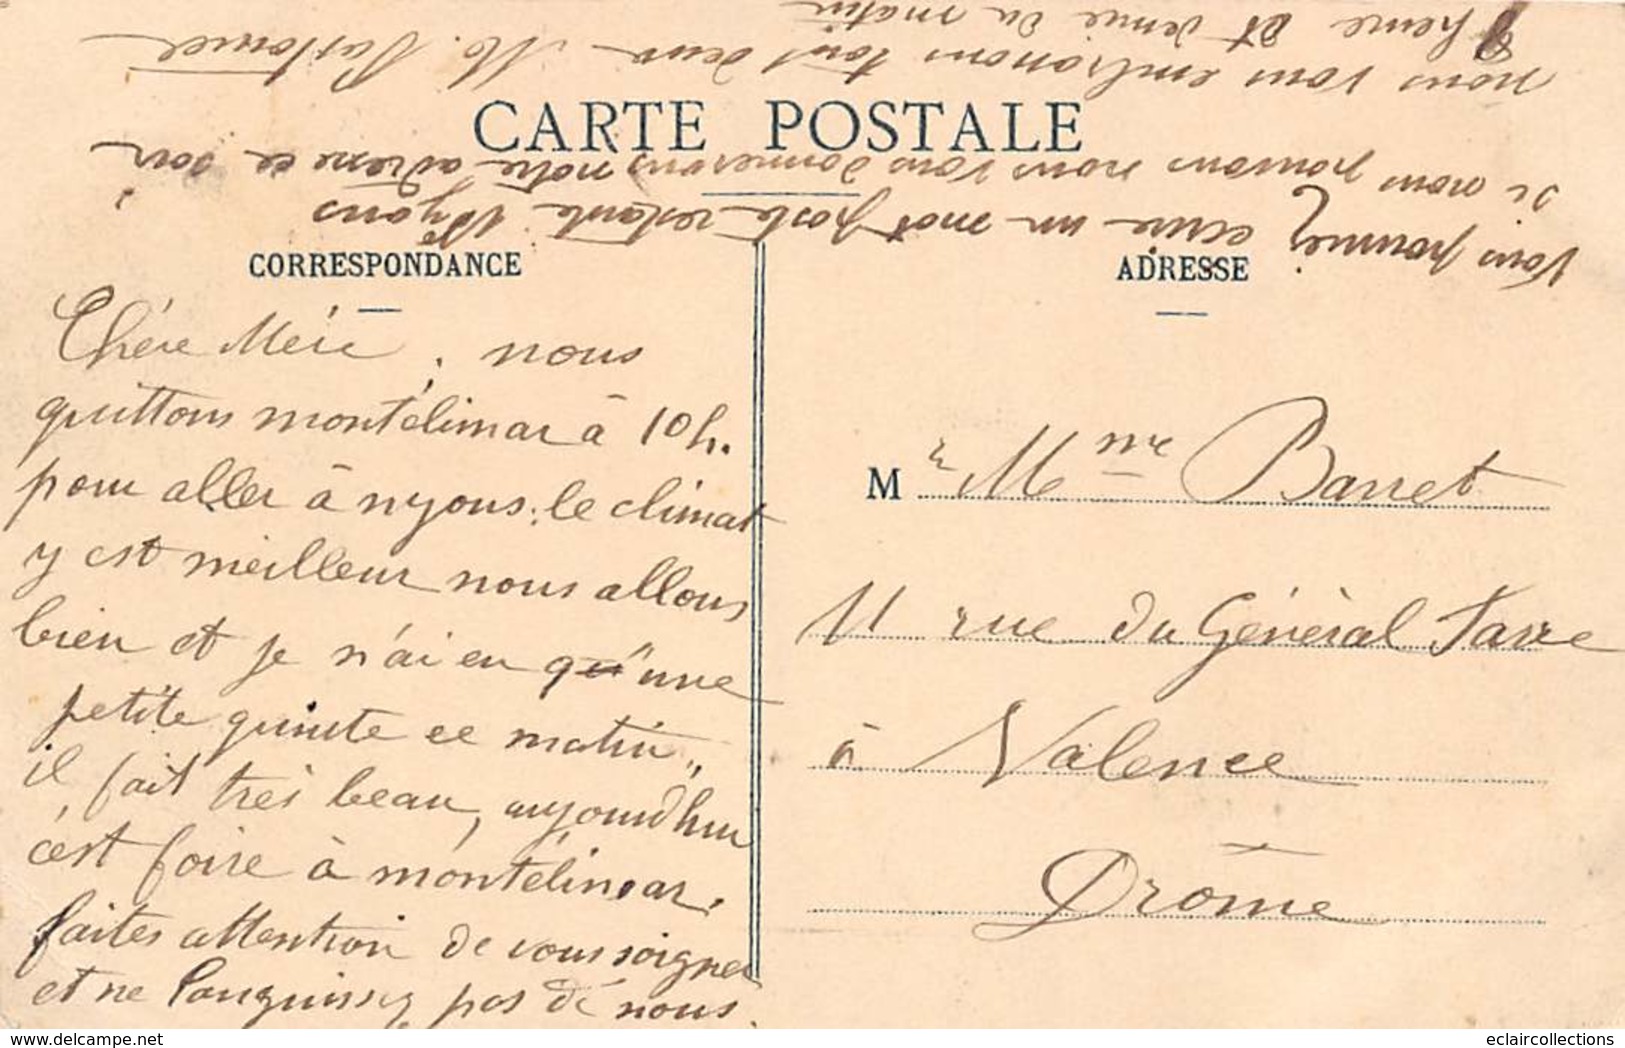 CARTE POSTALE
CORRESPONDANCE
Chère Mère, nous
quittons montélimar à 10h.
pour aller à nyons. le climat
y est meilleur nous allons
bien et je n'ai eu qu'une
petite quinte ce matin,
il fait très beau, aujourdhui
c'est foire à montélimar.
faites attention de vous soigner
et ne languissez pas de nous.
Vous pouvez écrire un mot poste restante Nyons
si nous pouvons nous vous donnerons notre adresse ce soir
nous vous embrassons tout deux M.
8 heure et demie du matin
ADRESSE
M Mme Barret
11 rue du Général Farre
à Valence
Drôme
www.delcampe.net
eclaircollections